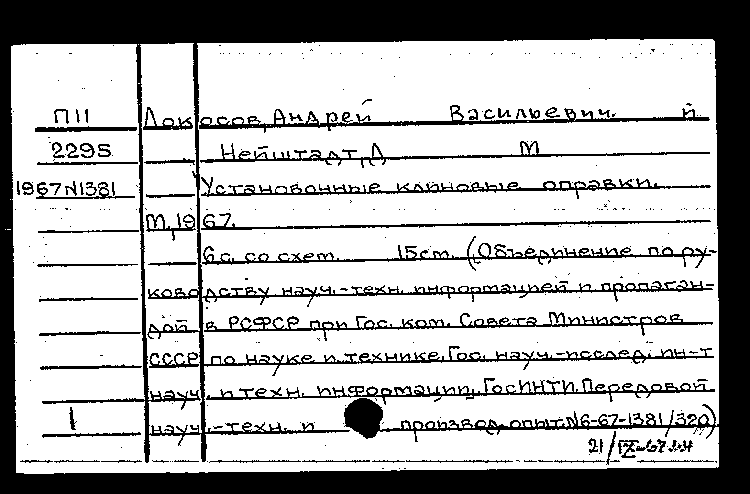 П11 Локосов, Андрей Васильевич. й
2295 Нейштадт, Д М
1967N1381 Установочные клиновые оправки.
М, 1967.
6 с. со схем. 15 cm. (Объединение по ру-
ководству науч.-техн. информацией и пропаган-
дой в РСФСР при Гос. ком. Совета Министров
СССР по науке и технике. Гос. науч.-исслед. ин-т
науч. и техн. информации. ГосИНТИ. Передовой
1 науч.-техн. и производ. опыт. N6-67-1381/320)
21/IX-67